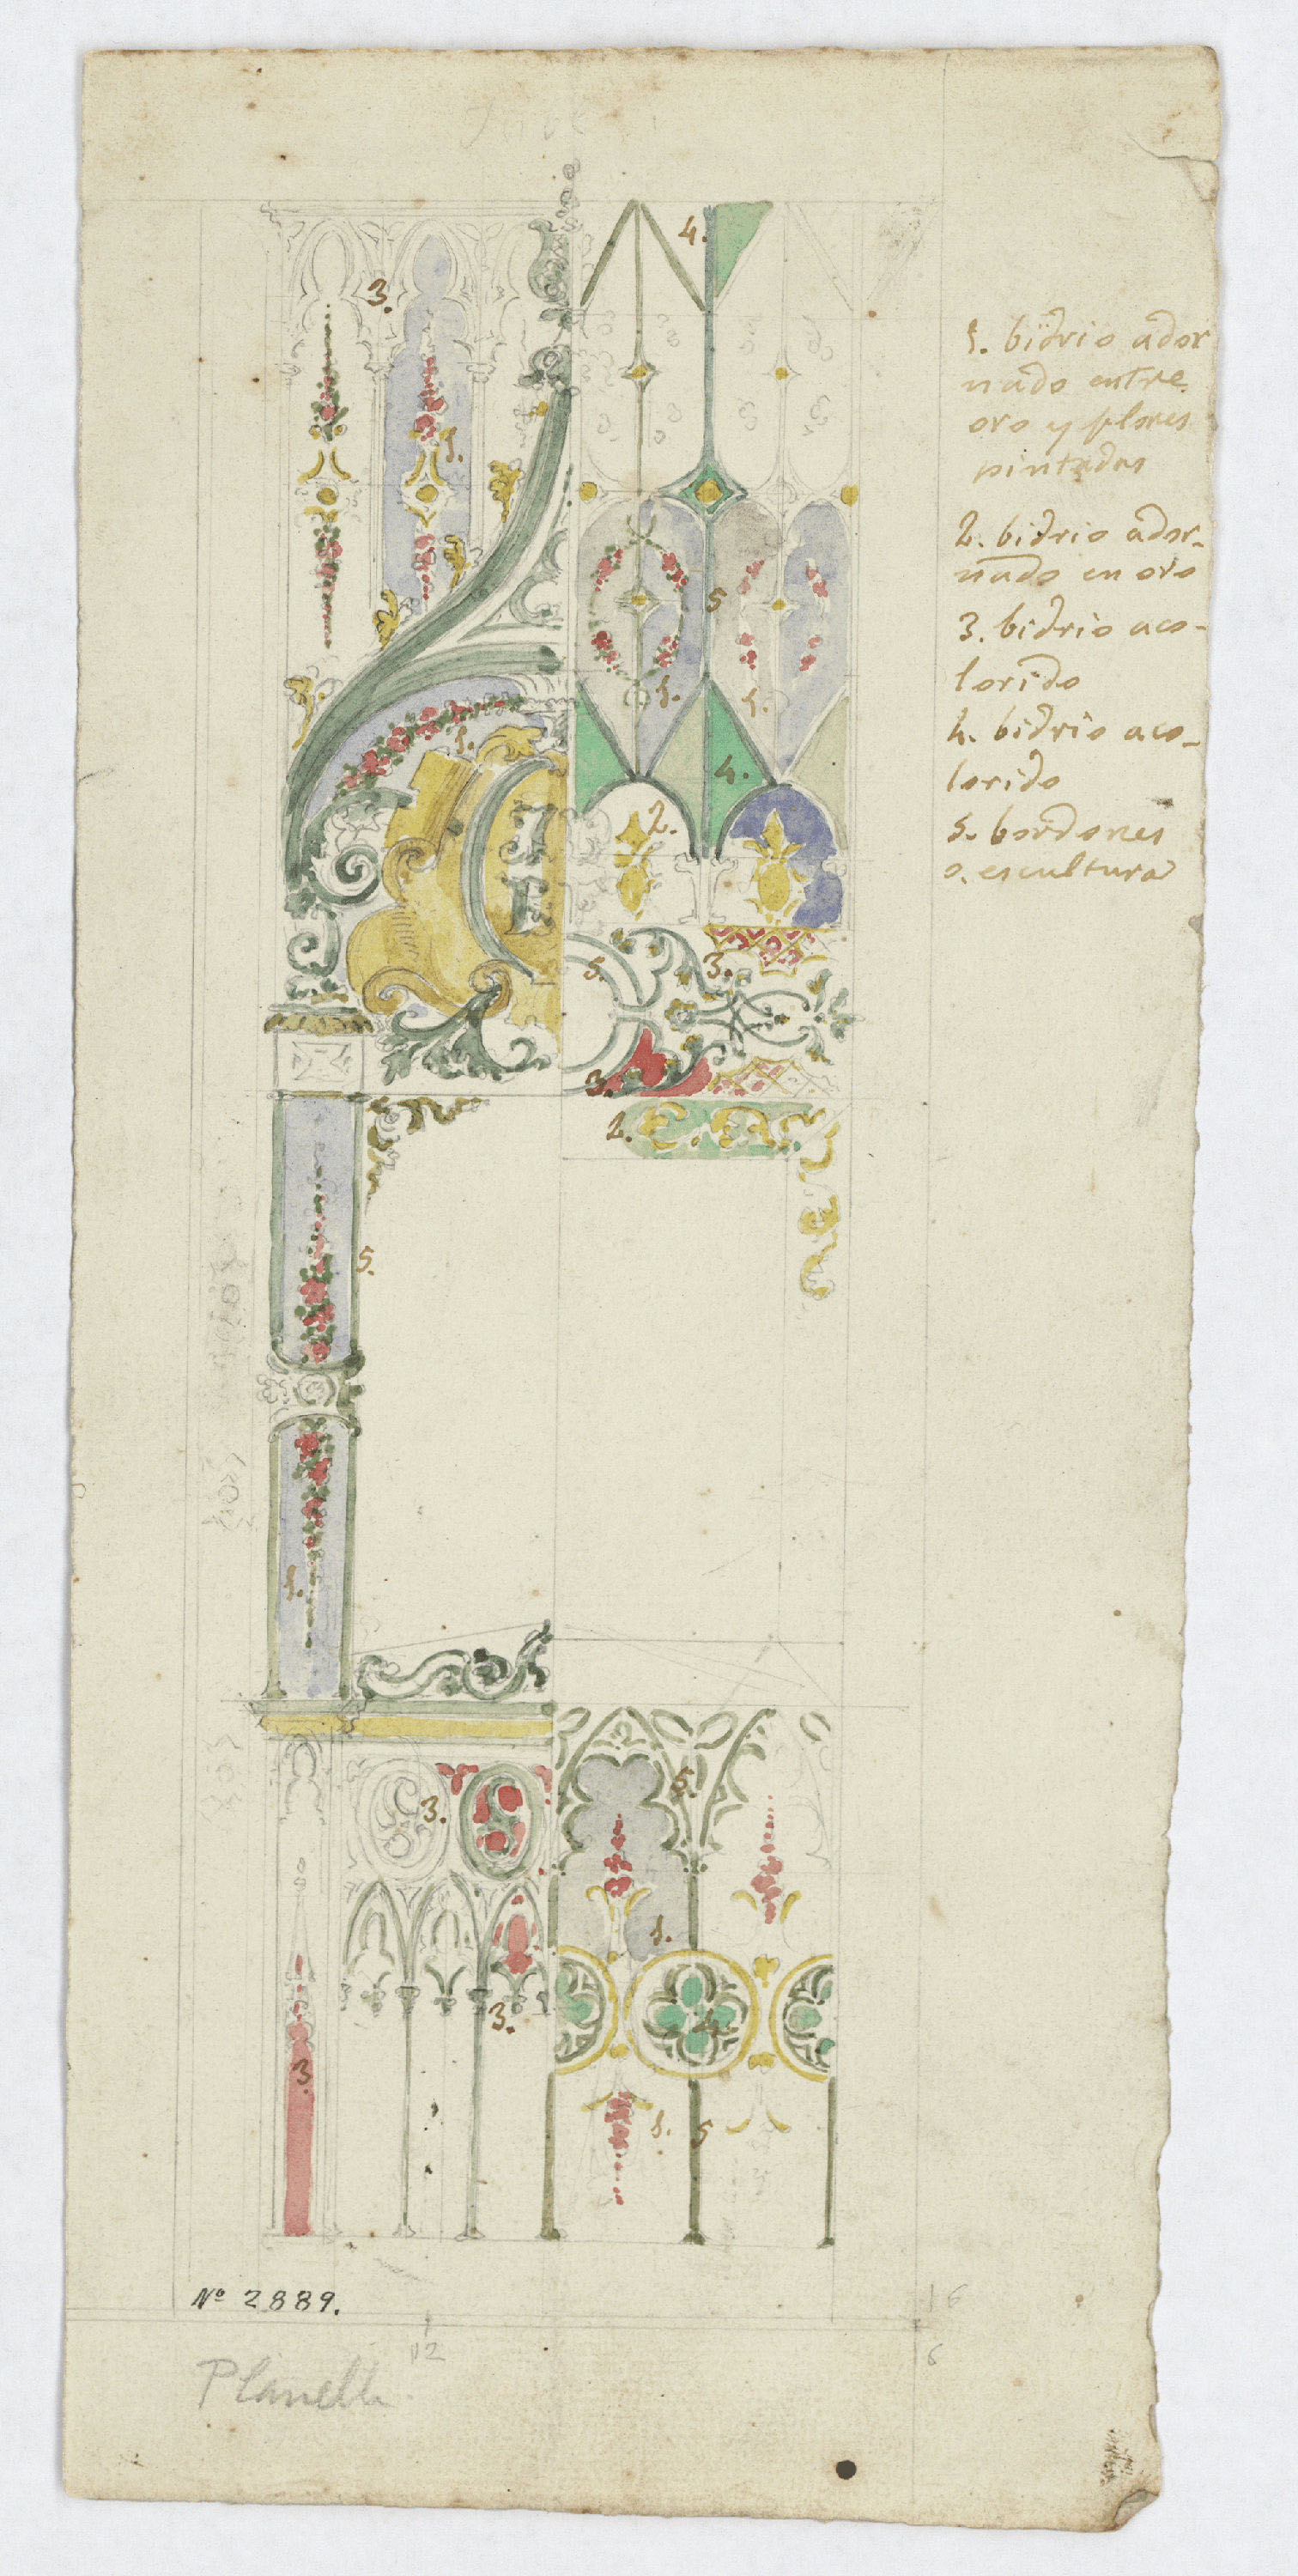 3.
4.
1.
5
1.
1.
1.
4.
2.
5.
3.
3.
2.
5.
1.
3.
5.
1.
3.
4
3
1.
5
1. bidrio ador
nado entre
oro y flores
pintadas
2. bidrio ador-
nado en oro
3. bidrio aco-
lorido
4. bidrio aco-
lorido
5. bordones
o. escultura
Nº 2889.
12
6
Planella